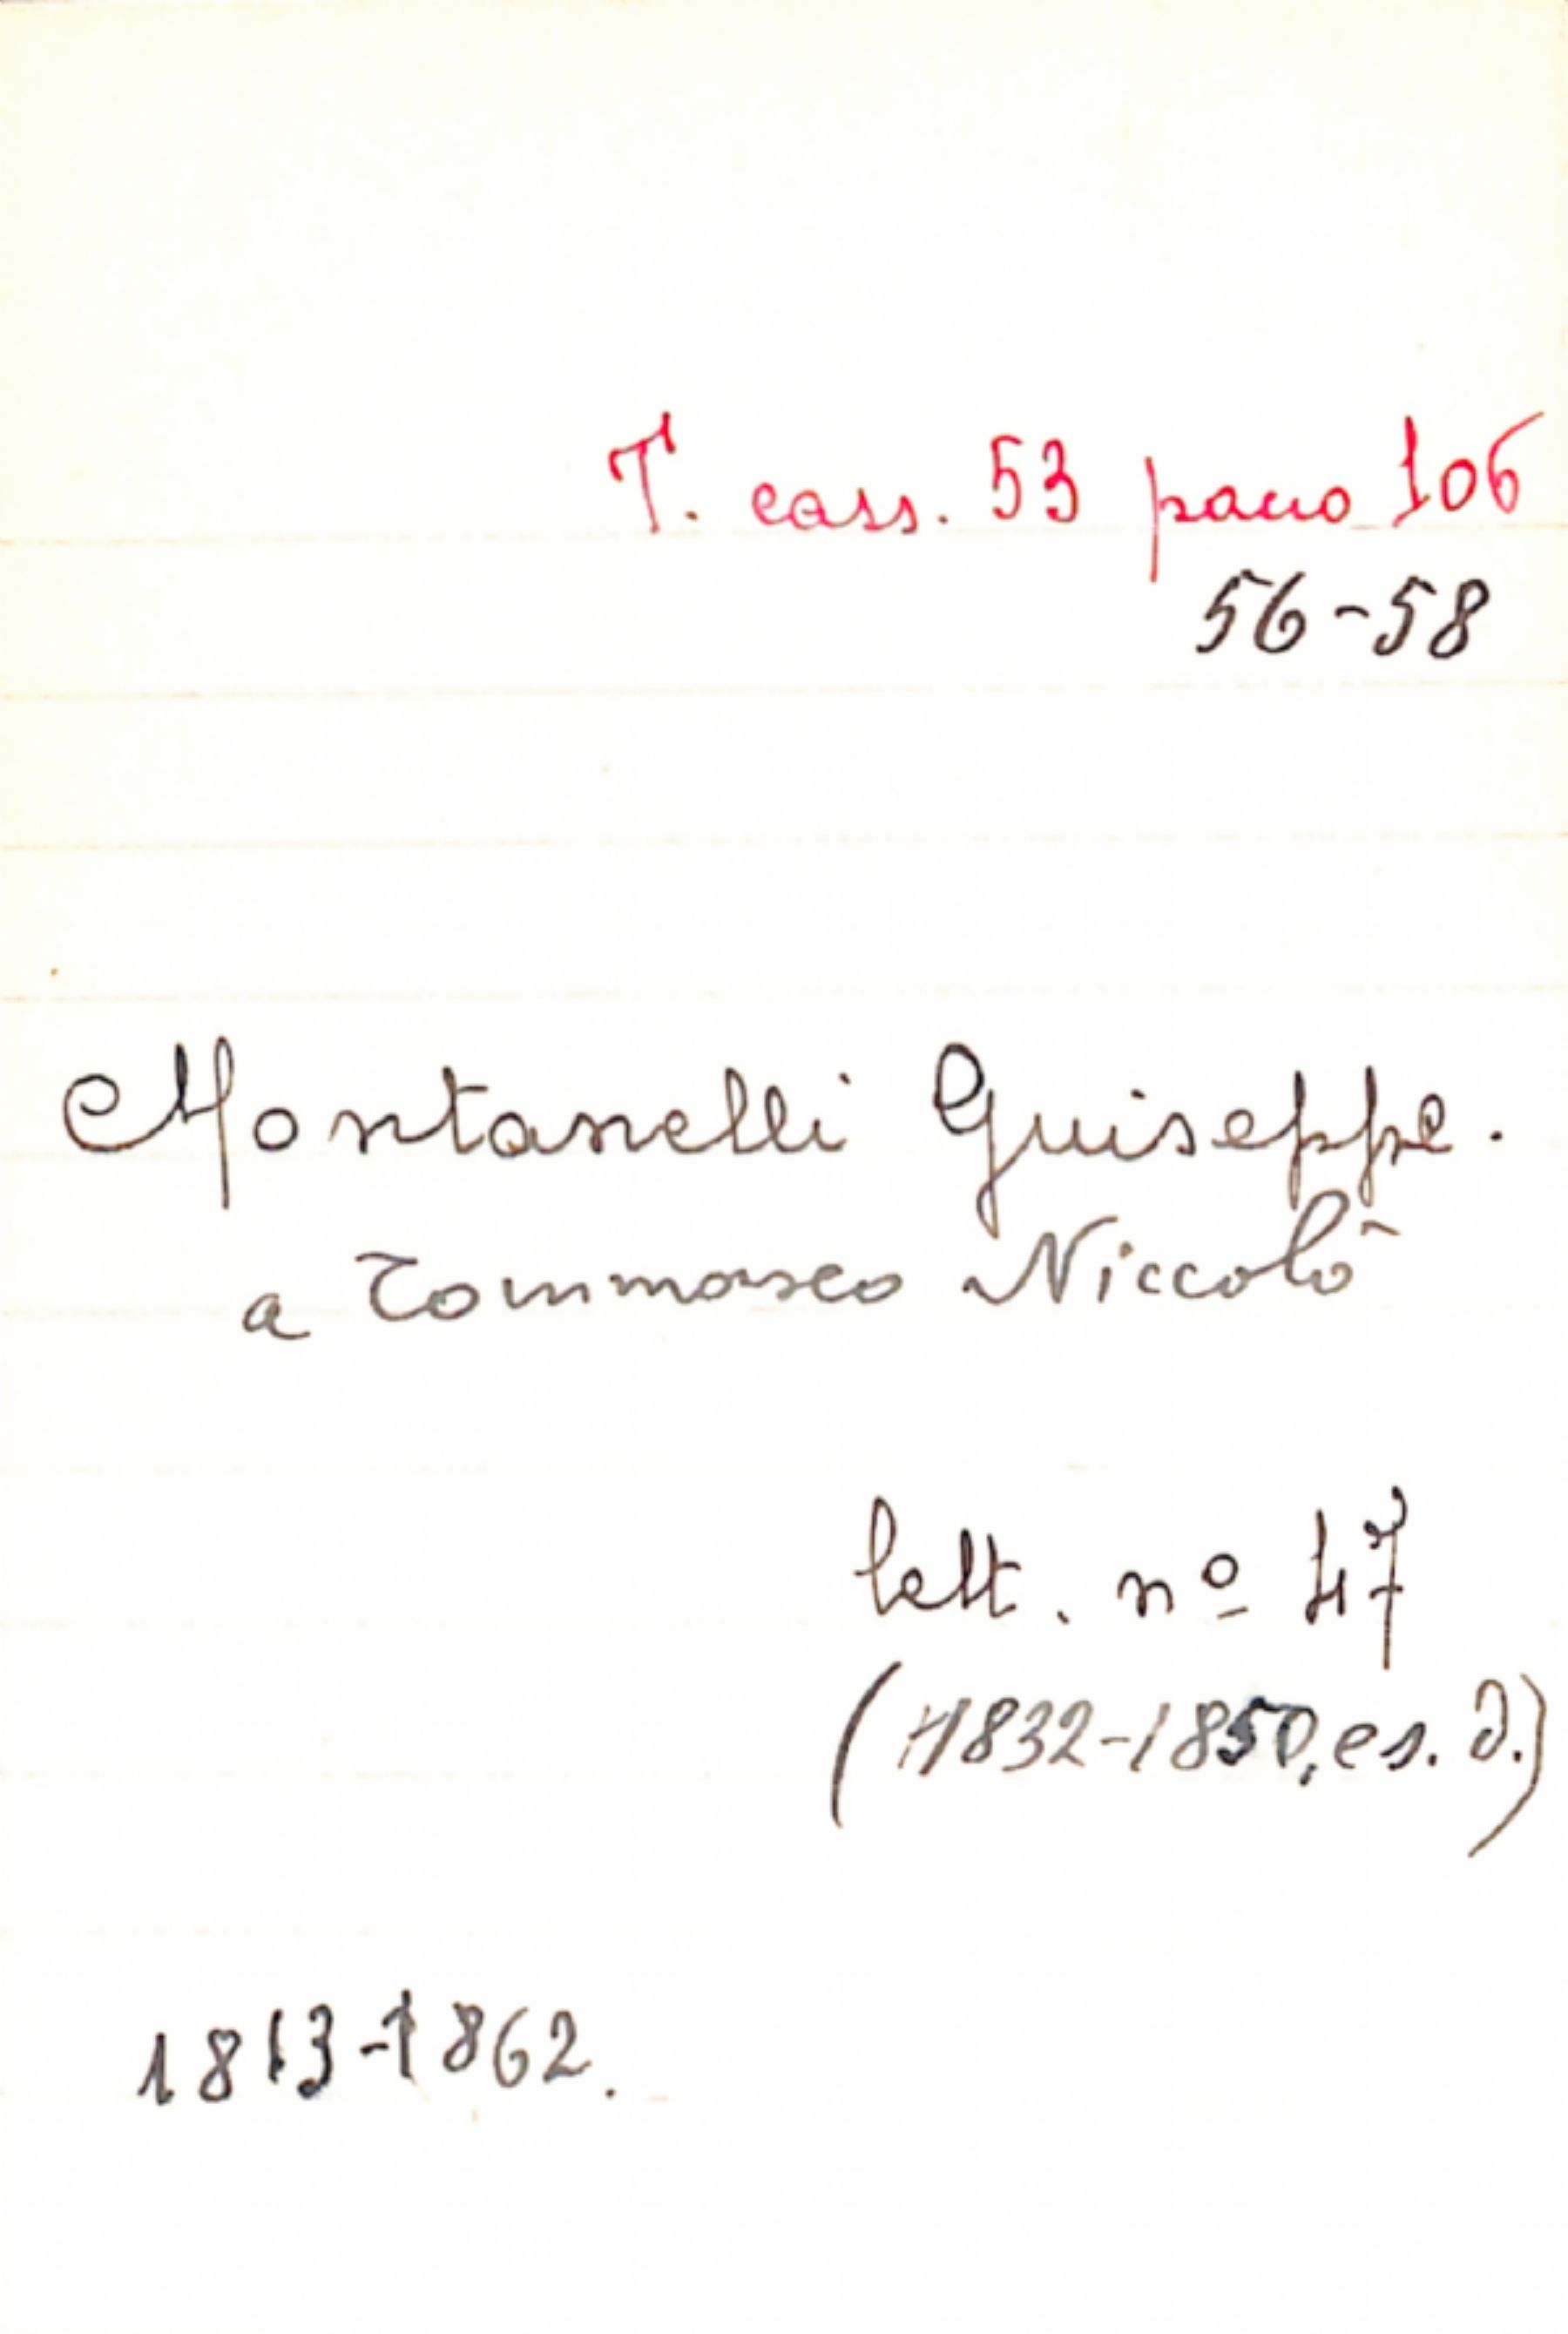 T. cass. 53 pacco 106
56-58
Montanelli Guiseppe.
a Tommaseo Niccolò
lett. nº 47
(1832-1850, e s. d.)
1813-1862.